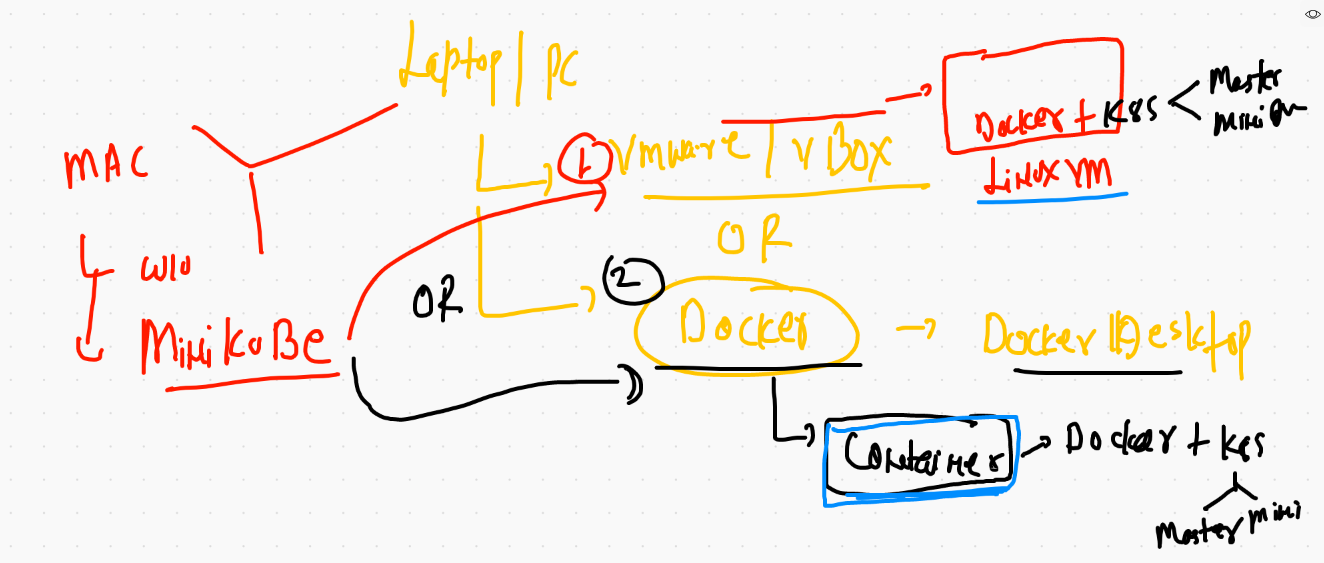 Laptop / PC
MAC
W10
MiniKuBe
1
Vmware / V Box
Docker + K8S
Master
Linux VM
OR
OR
2
Docker
Docker Desktop
Container
Docker + K8S
Master Mini